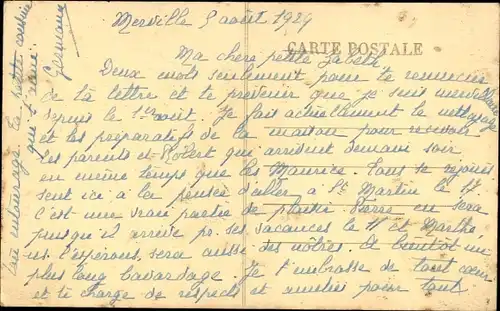 Merville 5 août 1929
CARTE POSTALE
Ma chère petite
Deux mots seulement pour te remercier
de ta lettre et te prévenir que je suis
depuis le 1er août. Je fais actuellement le nettoyage
et les préparatifs de la maison pour recevoir
les parents et Robert qui arrivent demain soir
en même temps que les Maurice. Tous se réjouis
sent ici à la pensée d'aller à St Martin le 17
C'est une vraie partie de plaisir Pierre en sera
puisqu'il arrive pr ses vacances le 11 et Marthe
ns. l'espérons, sera aussi des nôtres. A bientôt un
plus long bavardage. Je t'embrasse de tout cœur
et te charge de respects et amitiés pour tout
ton entourage. Ta petite cousine
que t'aime.
Germaine